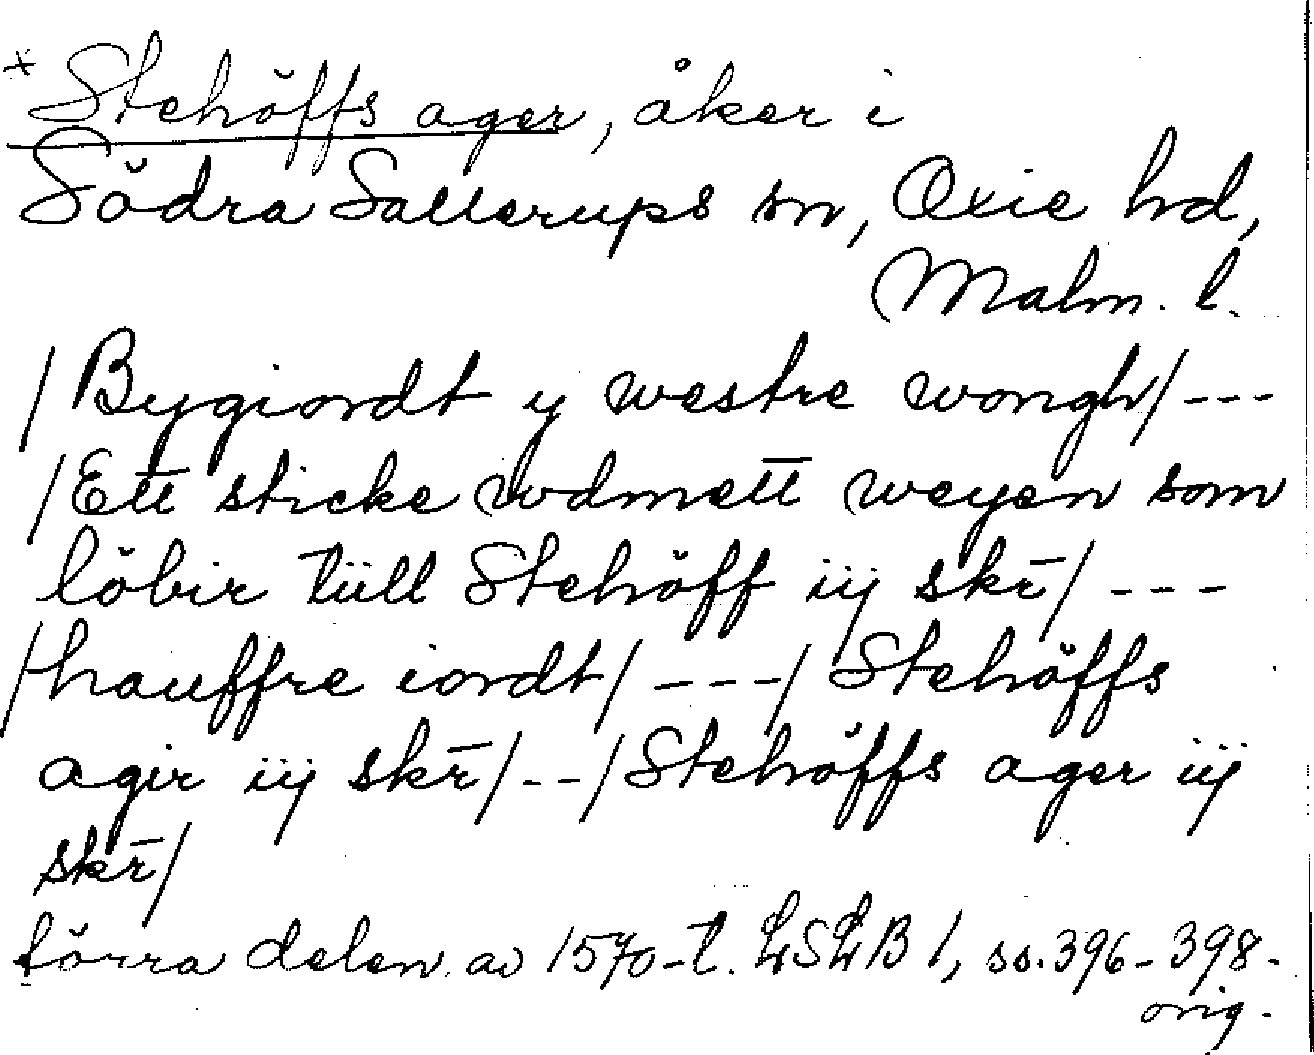 * Stehöffs ager, åker i
Södra Sallerups sn, Oxie hd,
Malm. l.
/Bygiordt y westre wongh/---
/Ett sticke wdmett weyen som
löbir tüll Stehöff iij skr̄/---
/hauffre iordt/---/Stehöffs
agir iij skr̄/--/Stehöffs ager iij
skr̄/
förra delen av 1570-t. LSLB 1, ss. 396-398.
orig.